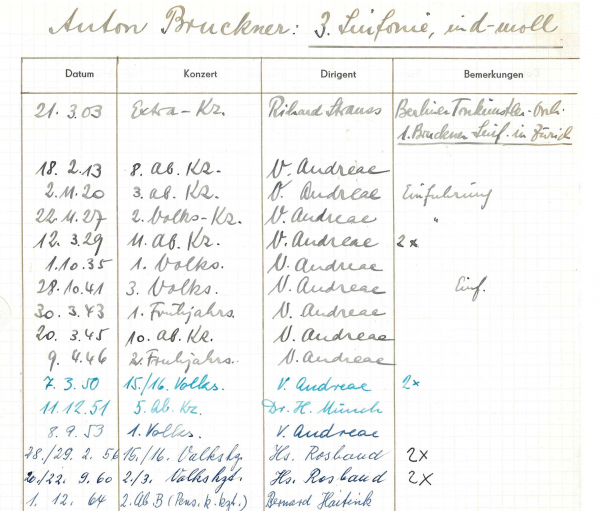 Anton Bruckner: 3. Sinfonie, in d-moll
Datum Konzert Dirigent Bemerkungen
21. 3.03 Extra-Kz. Richard Strauss Berliner Tonkünstler-Orch.
1. Bruckner Sinf. in Zürich
18. 2.13 8. Ab. Kz. V. Andreae
2.11.20 3. ab. Kz. V. Andreae Einführung
22.11.27 2. Volks-Kz. V. Andreae "
12. 3.29 11. Ab. Kz. V. Andreae 2x
1.10.35 1. Volks. V. Andreae
28.10.41 3. Volks. V. Andreae Einf.
30. 3.43 1. Frühjahrs. V. Andreae
20. 3.45 10. ab. Kz. V. Andreae
9. 4.46 2. Frühjahrs. V. Andreae
7. 3.50 15./16. Volks. V. Andreae 2x
11.12.51 5. Ab. Kz. Dr. H. Münch
8. 9.53 1. Volks. V. Andreae
28./29. 2. 56 15./16. Volkskz. Hs. Rosbaud 2x
20./22. 9.60 2./3. Volkskzt. Hs. Rosbaud 2x
1. 12. 64 2. Ab B (Pens. k. kzt.) Bernard Haitink